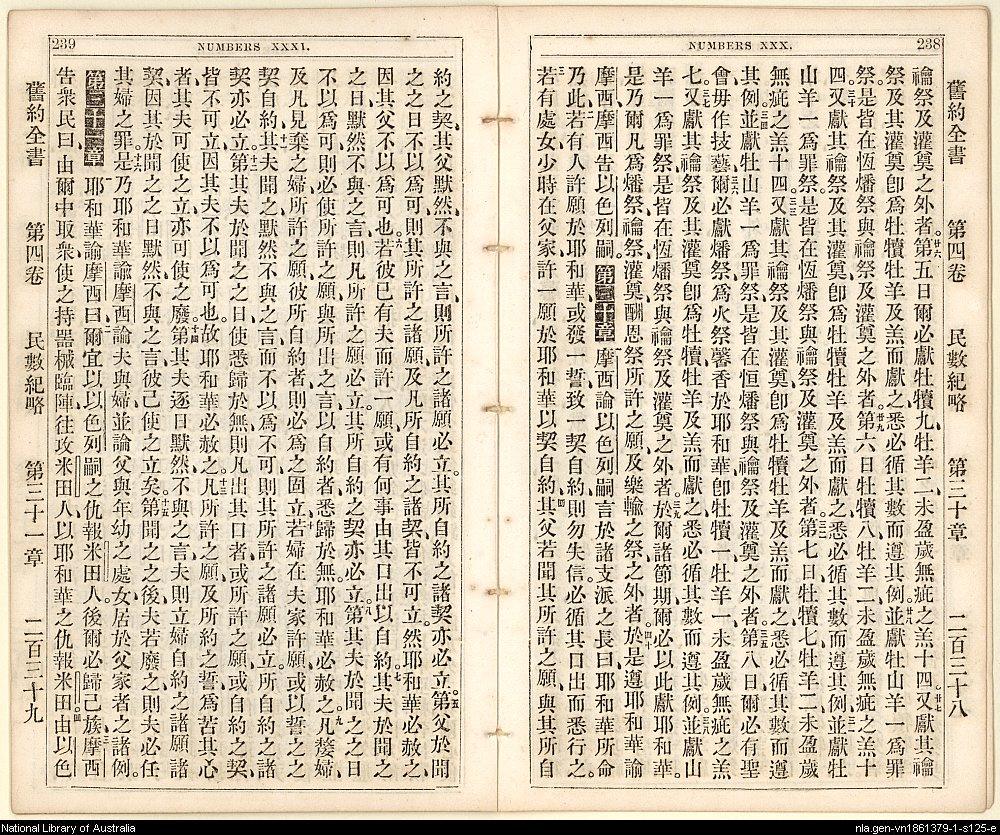 NUMBERS XXX. 238
舊約全書 第四卷 民數紀略 第三十章 二百三十八
禴祭及灌奠之外者、第五日爾必獻牡犢九、牡羊二、未盈歲無疵之羔十四、又獻其禴
祭及其灌奠、卽爲牡犢牡羊及羔而獻之、悉必循其數而遵其例、並獻牡山羊一爲罪
祭、是皆在恆燔祭與禴祭及灌奠之外者、第六日牡犢八、牡羊二、未盈歲無疵之羔十
四、又獻其禴祭及其灌奠、卽爲牡犢牡羊及羔而獻之、悉必循其數而遵其例、並獻牡
山羊一爲罪祭、是皆在恆燔祭與禴祭及灌奠之外者、第七日牡犢七、牡羊二、未盈歲
無疵之羔十四、又獻其禴祭及其灌奠、卽爲牡犢牡羊及羔而獻之、悉必循其數而遵
其例、並獻牡山羊一爲罪祭、是皆在恆燔祭與禴祭及灌奠之外者、第八日爾必有聖
會、毋作技藝、爾必獻燔祭爲火祭馨香於耶和華、卽牡犢一、牡羊一、未盈歲無疵之羔
七、又獻其禴祭及其灌奠、卽爲牡犢牡羊及羔而獻之、悉必循其數而遵其例、並獻山
羊一爲罪祭、是皆在恆燔祭與禴祭及灌奠之外者、於爾諸節期、爾必以此獻耶和華、
是乃爾凡爲燔祭禴祭灌奠酬恩祭所許之願、及樂輸之祭之外者、於是遵耶和華諭
摩西、摩西告以色列嗣。第三十章 摩西諭以色列嗣言於諸支派之長曰、耶和華所命
乃此、若有人許願於耶和華、或發一誓、致一契自約、則勿失信、必循其口出而悉行之。
若有處女少時在父家、許一願於耶和華、以契自約、其父若聞其所許之願、與其所自
239 NUMBERS XXXI.
約之契、其父默然、不與之言、則所許之諸願必立、其所自約之諸契亦必立。第父於聞
之之日、不以爲可、則其所許之諸願、及凡所自約之諸契、皆不可立、然耶和華必赦之、
因其父不以爲可也。若彼已有夫、而許一願、或有何事由其口出以自約、其夫於聞之
之日、默然不與之言、則凡所許之願必立、其所自約之契亦必立。第其夫於聞之之日、
不以爲可、則必使所許之願、與所出之言以自約者、悉歸於無、耶和華必赦之。凡嫠婦
及凡見棄之婦所許之願、彼所自約者、則必爲之固立。若婦在夫家許願、或以誓之之
契自約、其夫聞之、默然不與之言、而不以爲不可、則其所許之諸願必立、凡所自約之諸
契亦必立。第其夫於聞之之日、使悉歸於無、則凡出其口者、或所許之願、或自約之契、
皆不可立、因其夫不以爲可也、故耶和華必赦之。凡所許之願、及所約之誓、爲苦其心
者、其夫可使之立、亦可使之廢。第其夫逐日默然不與之言、夫則立婦自約之諸願諸
契、因其於聞之之日默然不與之言、彼己使之立矣。第聞之之後、夫若廢之、則夫必任
其婦之罪、是乃耶和華諭摩西論夫與婦、並論父與年幼之處女居於父家者之諸例。
第三十一章 耶和華諭摩西曰、爾宜以以色列嗣之仇報米田人、後爾必歸己族、摩西
告衆民曰、由爾中取衆、使之持器械臨陣、往攻米田人、以耶和華之仇報米田、由以色
舊約全書 第四卷 民數紀略 第三十一章 二百三十九
National Library of Australia
nla.gen-vn1861379-1-s125-e